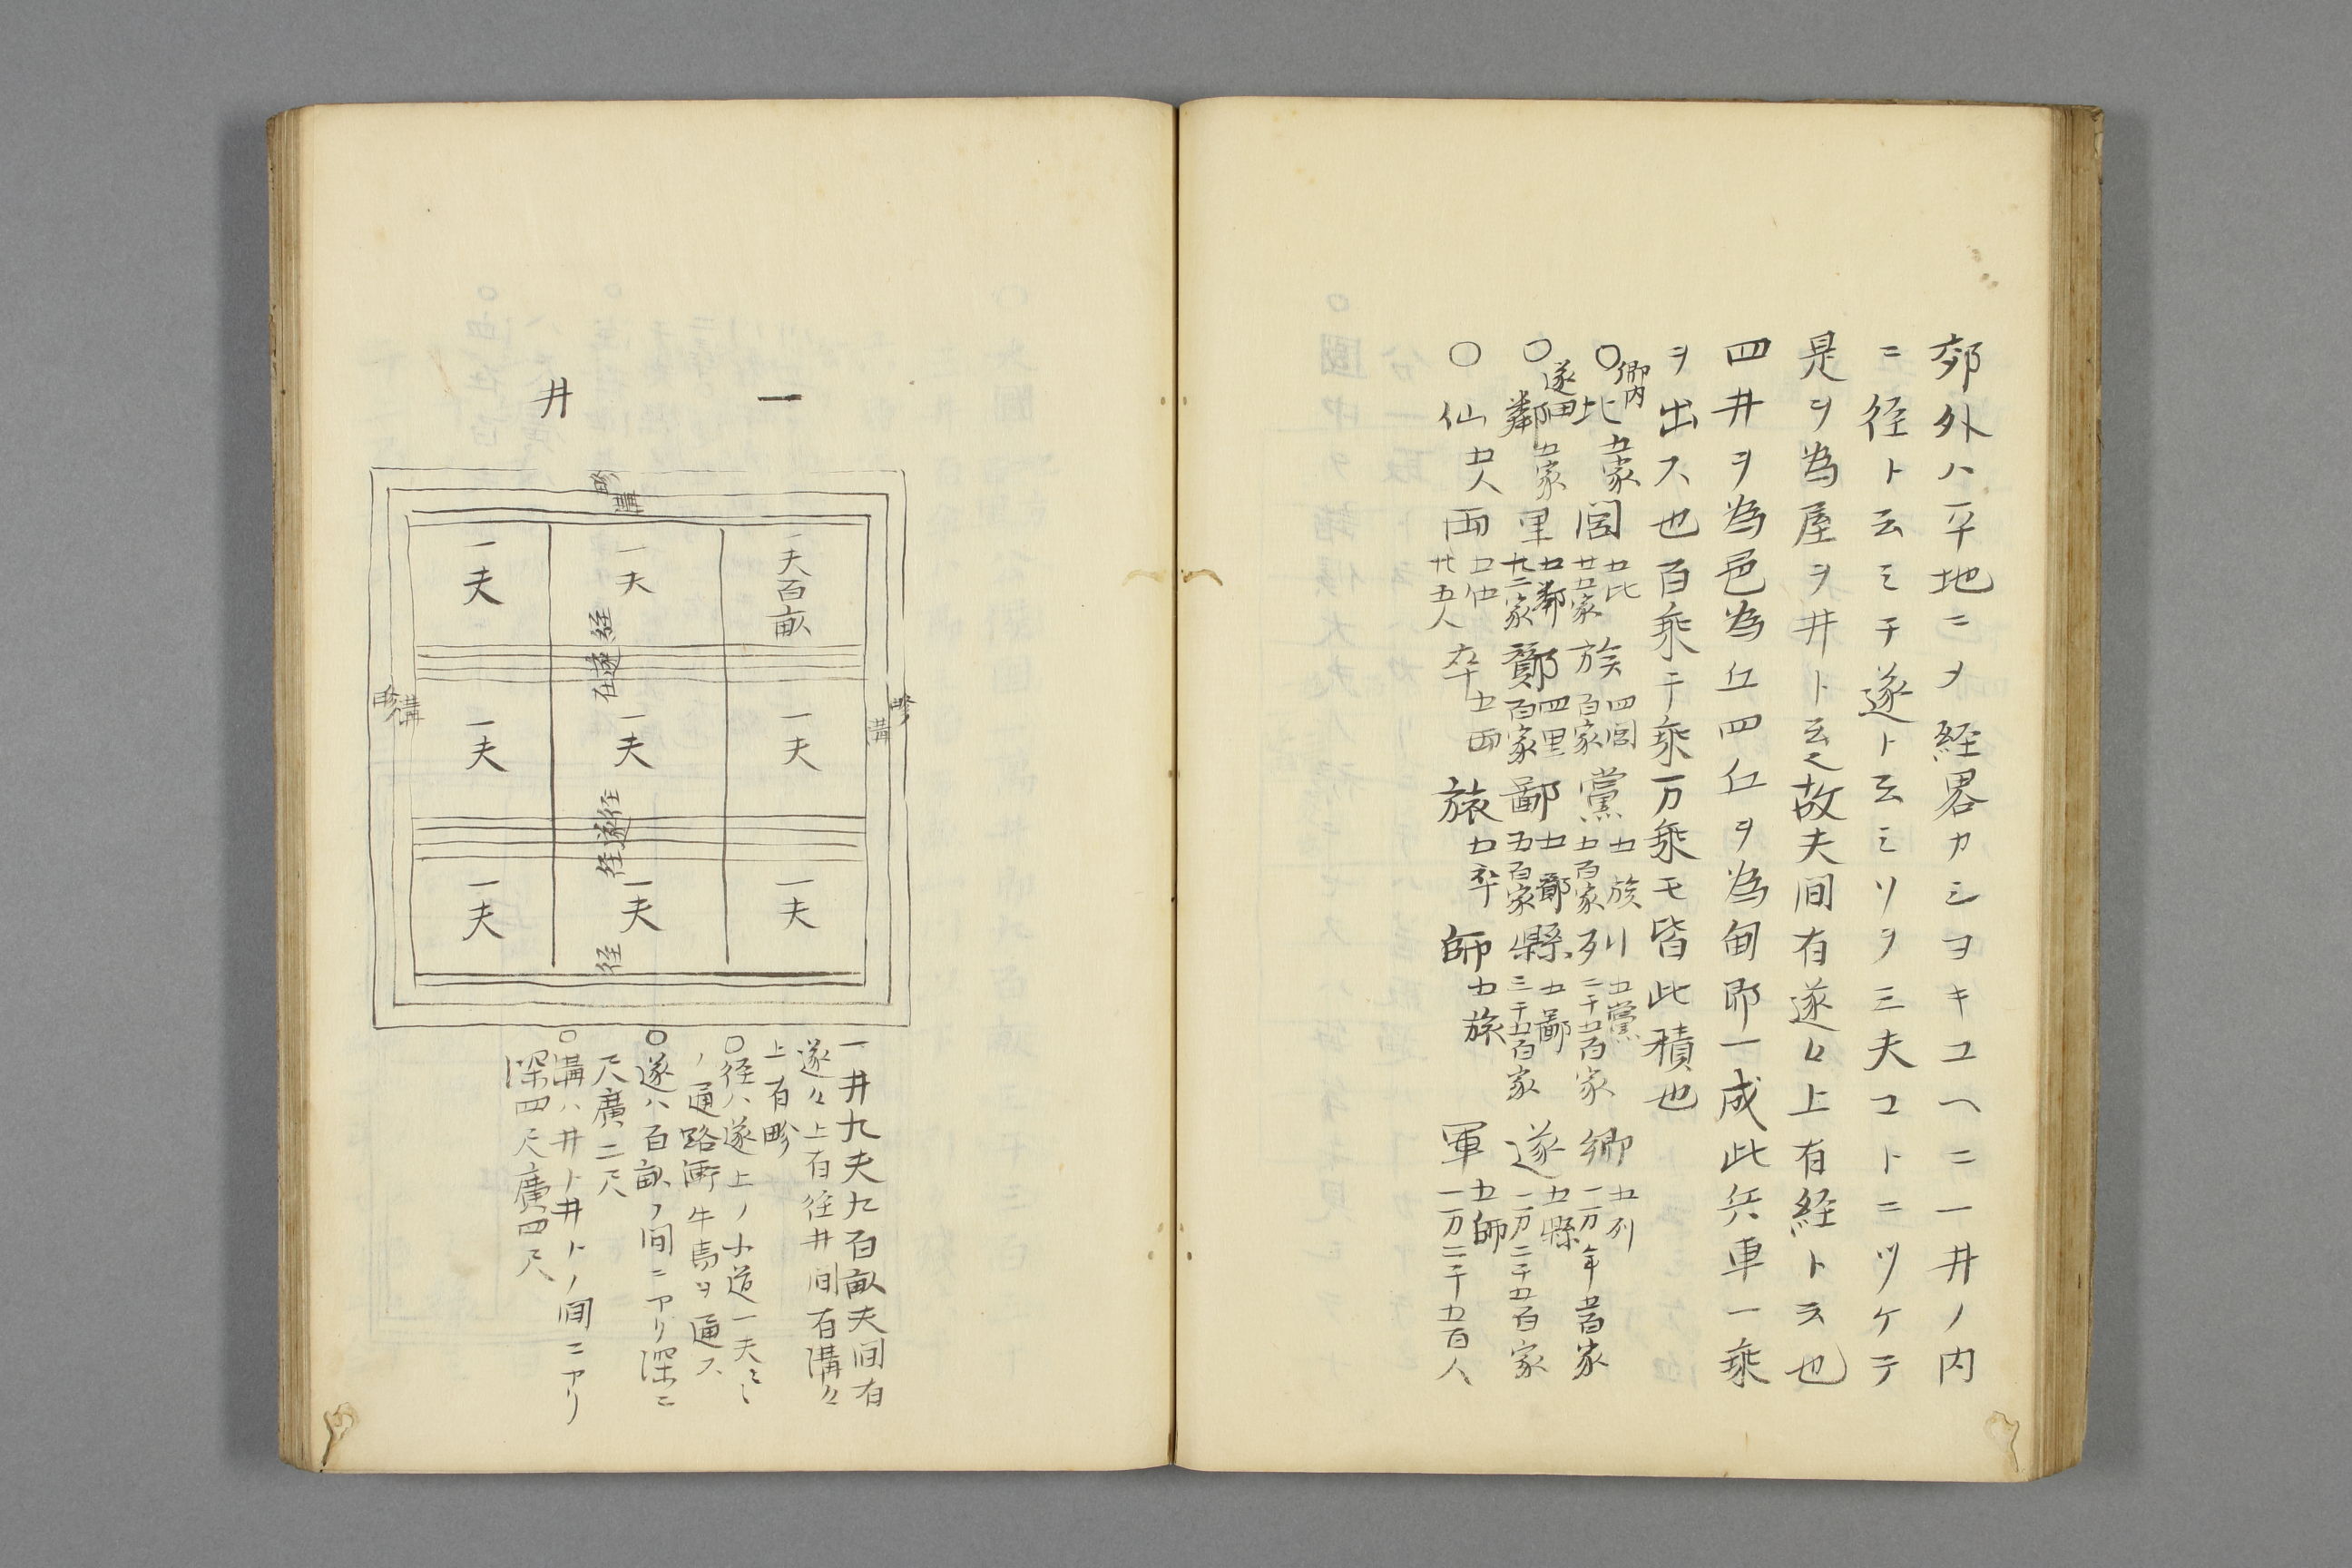 郊外ハ平地ニメ経畧カシヨキユヘニ一井ノ内
ニ径ト云ミチ遂ト云ミソヲ三夫コトニツケテ
是ヲ為屋ヲ井ト云之故夫間有遂々上有経ト云也
四井ヲ為邑為丘四丘ヲ為甸即一成此兵車一乗
ヲ出ス也百乗千乗万乗モ皆此積也
〇郷内比五家閭五比廿五家族四閭百家黨五族五百家列五黨二千五百家郷五列一万二千五百家
〇遂田鄰五家里五鄰廿二家酇四里百家鄙五酇五百家縣五鄙二千五百家遂五縣一万二千五百家
〇仙五人両五仙廿五人卒五両旅五卒師五旅軍五師一万二千五百人
一井
畛
溝
一夫百畝
一夫
一夫
経
遂
径
畛
溝
一夫
一夫
一夫
畛
溝
径
遂
径
一夫
一夫
一夫
径
一井九夫九百畝夫間有
遂々上有径井間有溝々
上有畛
〇径ハ遂上ノ小道一夫々々
ノ通路衝牛馬ヲ通ス
〇遂ハ百畝ノ間ニアリ深二
尺廣二尺
〇溝ハ井ト井トノ間ニアリ
深四尺廣四尺